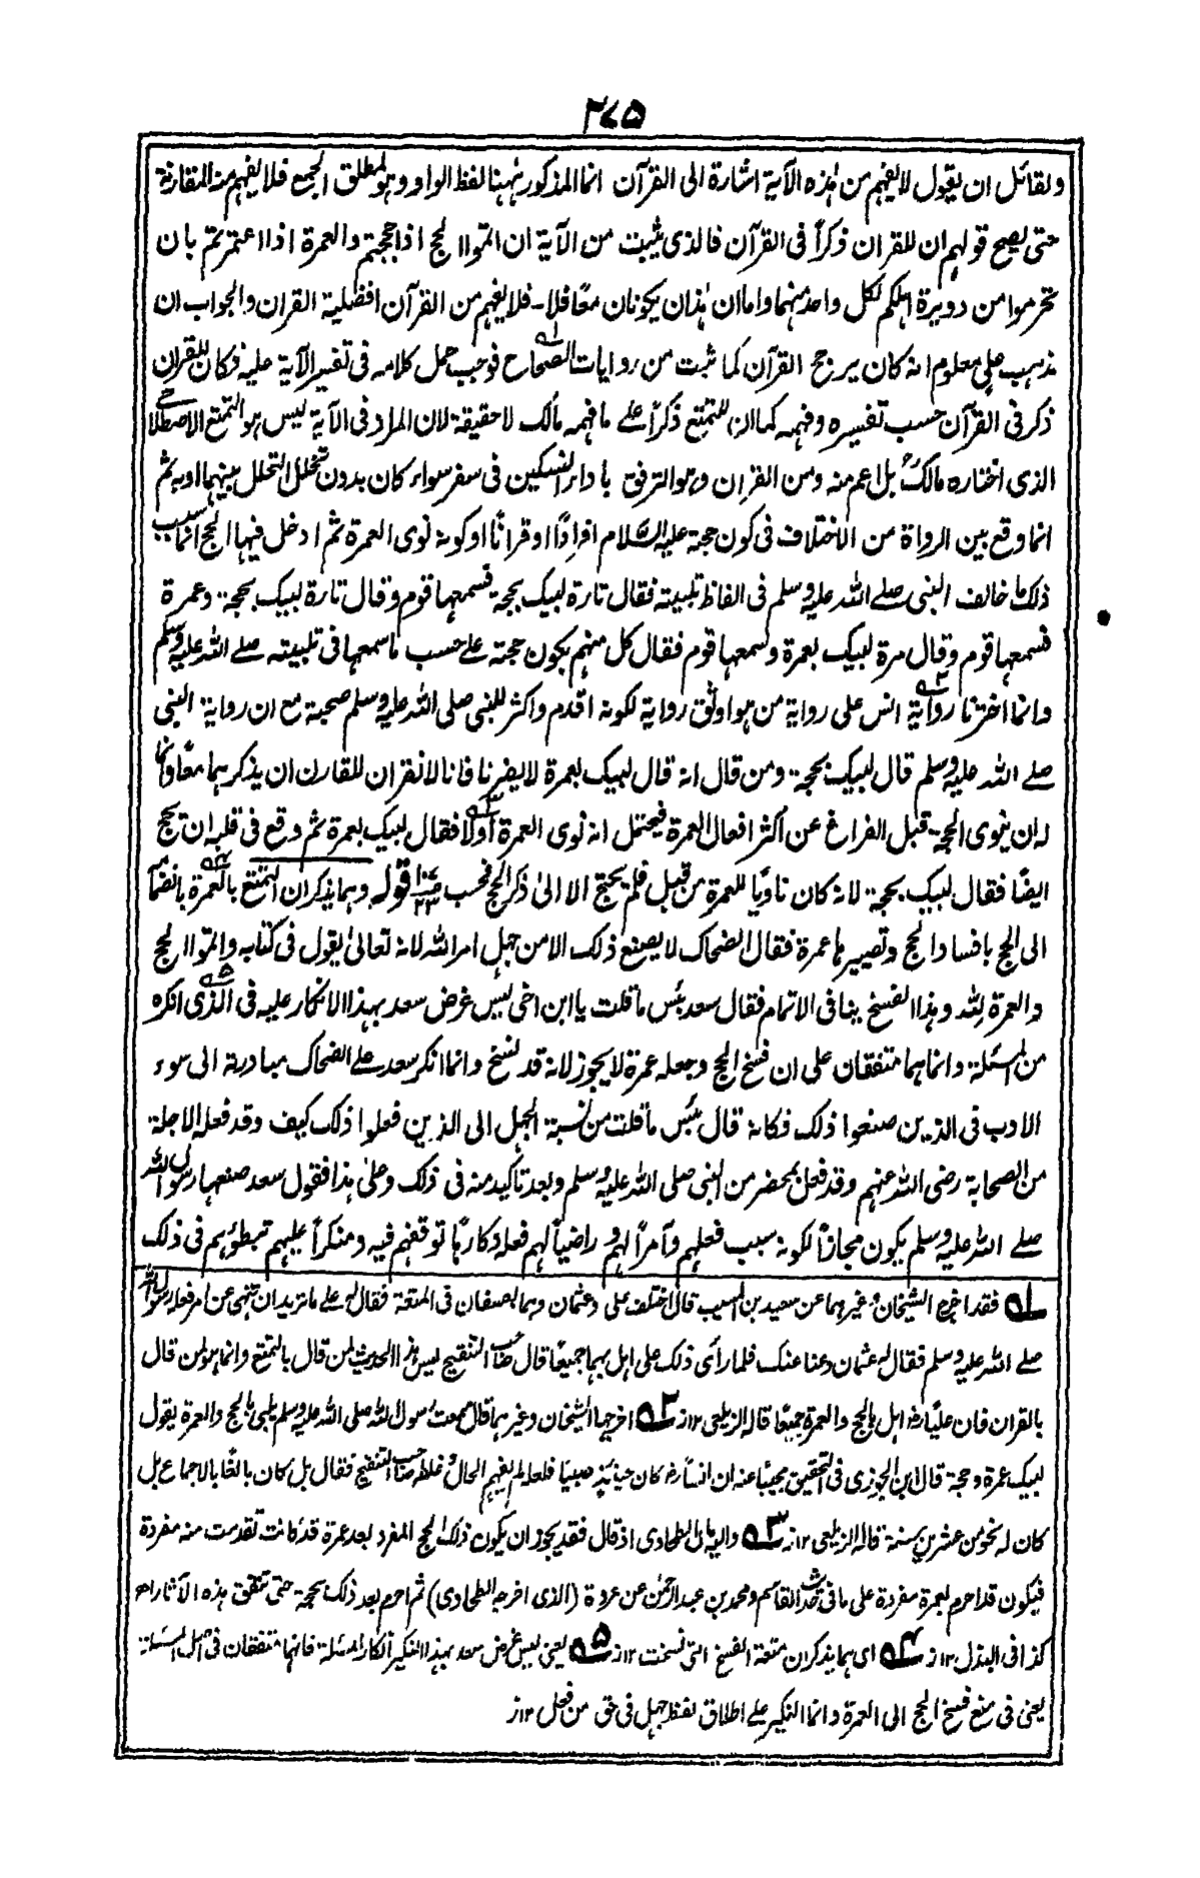 ٢٧٥
ولقائل ان يقول لا يفهم من هذه الآية اشارة الى القرآن انما المذكور ههنا لفظ الواو وهو لمطلق الجمع فلا يفهم منه المقارنة
حتى يصح قولهم ان للقران ذكراً فى القرآن فالذى يثبت من الآية ان اتموا الحج اذا حججتم والعمرة اذا اعتمرتم بان
تحرموا من دويرة اهلكم لكل واحد منهما واما ان هذان يكونان معًا فلا - فلا يفهم من القرآن افضلية القران والجواب ان
مذهب على معلوم انه كان يرجح القرآن كما ثبت من روايات الصحاح فوجب حمل كلامه فى تفسير الآية عليه فكان للقران
ذكر فى القرآن حسب تفسيره وفهمه كما ان للتمتع ذكراً على ما فهمه مالك لا حقيقة لان المراد فى الآية ليس هو التمتع الاصطلاحى
الذى اختاره مالك بل اعم منه ومن القران وهو الترفق باداء النسكين فى سفر سواء كان بدون تخلل التحلل بينهما او به ثم
انما وقع بين الرواة من الاختلاف فى كون حجته عليه السلام افرادًا او قرانًا او كونه نوى العمرة ثم ادخل فيها الحج انما سبب
ذلك ما خالف النبى صلى الله عليه وسلم فى الفاظ تلبيته فقال تارة لبيك بحجة فسمعها قوم وقال تارة لبيك بحجة وعمرة
فسمعها قوم وقال مرة لبيك بعمرة وسمعها قوم فقال كل منهم بكون حجته على حسب ما سمعها فى تلبيته صلى الله عليه وسلم
وانما اخترنا رواية انس على رواية من هو اوثق رواية لكونه اقدم واكثر للنبى صلى الله عليه وسلم صحبة مع ان رواية النبى
صلى الله عليه وسلم قال لبيك بحجة ومن قال انه قال لبيك بعمرة لا يضرنا فانا لا نقران للقارن ان يذكرهما معًا وانما
له ان ينوى الحجة قبل الفراغ عن اكثر افعال العمرة فيحتمل انه نوى العمرة اولا فقال لبيك بعمرة ثم وقع فى قلبه ان يحج
ايضًا فقال لبيك بحجة لانه كان ناويًا للعمرة من قبل فلم يحتج الا الى ذكر الحج فحسب قوله وهما يذكران التمتع بالعمرة بانضمامها
الى الحج بافساد الحج وتصييرها عمرة فقال الضحاك لا يصنع ذلك الا من جهل امر الله لانه تعالى يقول فى كتابه واتموا الحج
والعمرة لله وهذا الفسخ ينافى الاتمام فقال سعد بئس ما قلت يا ابن اخى ليس غرض سعد بهذا الانكار عليه فى الذى انكره
من المسئلة وانما هما متفقان على ان فسخ الحج وجعله عمرة لا يجوز لانه قد نسخ وانما انكر سعد على الضحاك مبادرته الى سوء
الادب فى الذين صنعوا ذلك فكانه قال بئس ما قلت من نسبة الجهل الى الذين فعلوا ذلك كيف وقد فعله الاجلة
من الصحابة رضى الله عنهم وقد فعل بمحضر من النبى صلى الله عليه وسلم وبعد تاكيد منه فى ذلك وعلى هذا فقول سعد صنعها رسول الله
صلى الله عليه وسلم يكون مجازًا لكونه سبب فعلهم وآمراً لهم و راضياً لهم فعله وكارهًا توقفهم فيه ومنكراً عليهم تبطؤهم فى ذلك
له فقد اخرج الشيخان وغيرهما عن سعيد بن المسيب قال اختلف على وعثمان وهما بعسفان فى المتعة فقال له على ما تريد ان تنهى عن امر فعله رسول الله
صلى الله عليه وسلم فقال له عثمان دعنا عنك فلما رأى ذلك على اهل بهما جميعًا قال صاحب التنقيح ليس هذا الحديث لمن قال بالتمتع وانما هو لمن قال
بالقران فان عليًا رضـ اهل بالحج والعمرة جميعًا قاله الزيلعى ١٢ز ٢ه اخرجها الشيخان وغيرهما قال سمعت رسول الله صلى الله عليه وسلم يلبى بالحج والعمرة يقول
لبيك عمرة وحجة قال ابن الجوزى فى التحقيق مجيبًا عنه ان انسًا رضـ كان حينئذ صبيًا فلعله لم يفهم الحال وغلطه صاحب التنقيح فقال بل كان بالغًا بالاجماع بل
كان له نحو من عشرين سنة قاله الزيلعى ١٢ز ٣ه واليه مال الطحاوى اذ قال فقد يجوز ان يكون ذلك الحج المفرد بعد عمرة قد كانت تقدمت منه مفردة
فيكون قد احرم بعمرة مفردة على ما فى حديث القاسم ومحمد بن عبد الرحمن عن عروة (الذى اخرجه الطحاوى) ثم احرم بعد ذلك بحجة حتى تتفق هذه الآثار اهـ
كذا فى البذل ١٢ز ٤ه اى هما يذكران متعة الفسخ التى نسخت ١٢ز ٥ه يعنى ليس غرض سعد بهذا النكير انكار المسئلة فانهما متفقان فى اصل المسئلة
يعنى فى منع فسخ الحج الى العمرة وانما النكير على اطلاق لفظ جهل فى حق من فعل ١٢ز